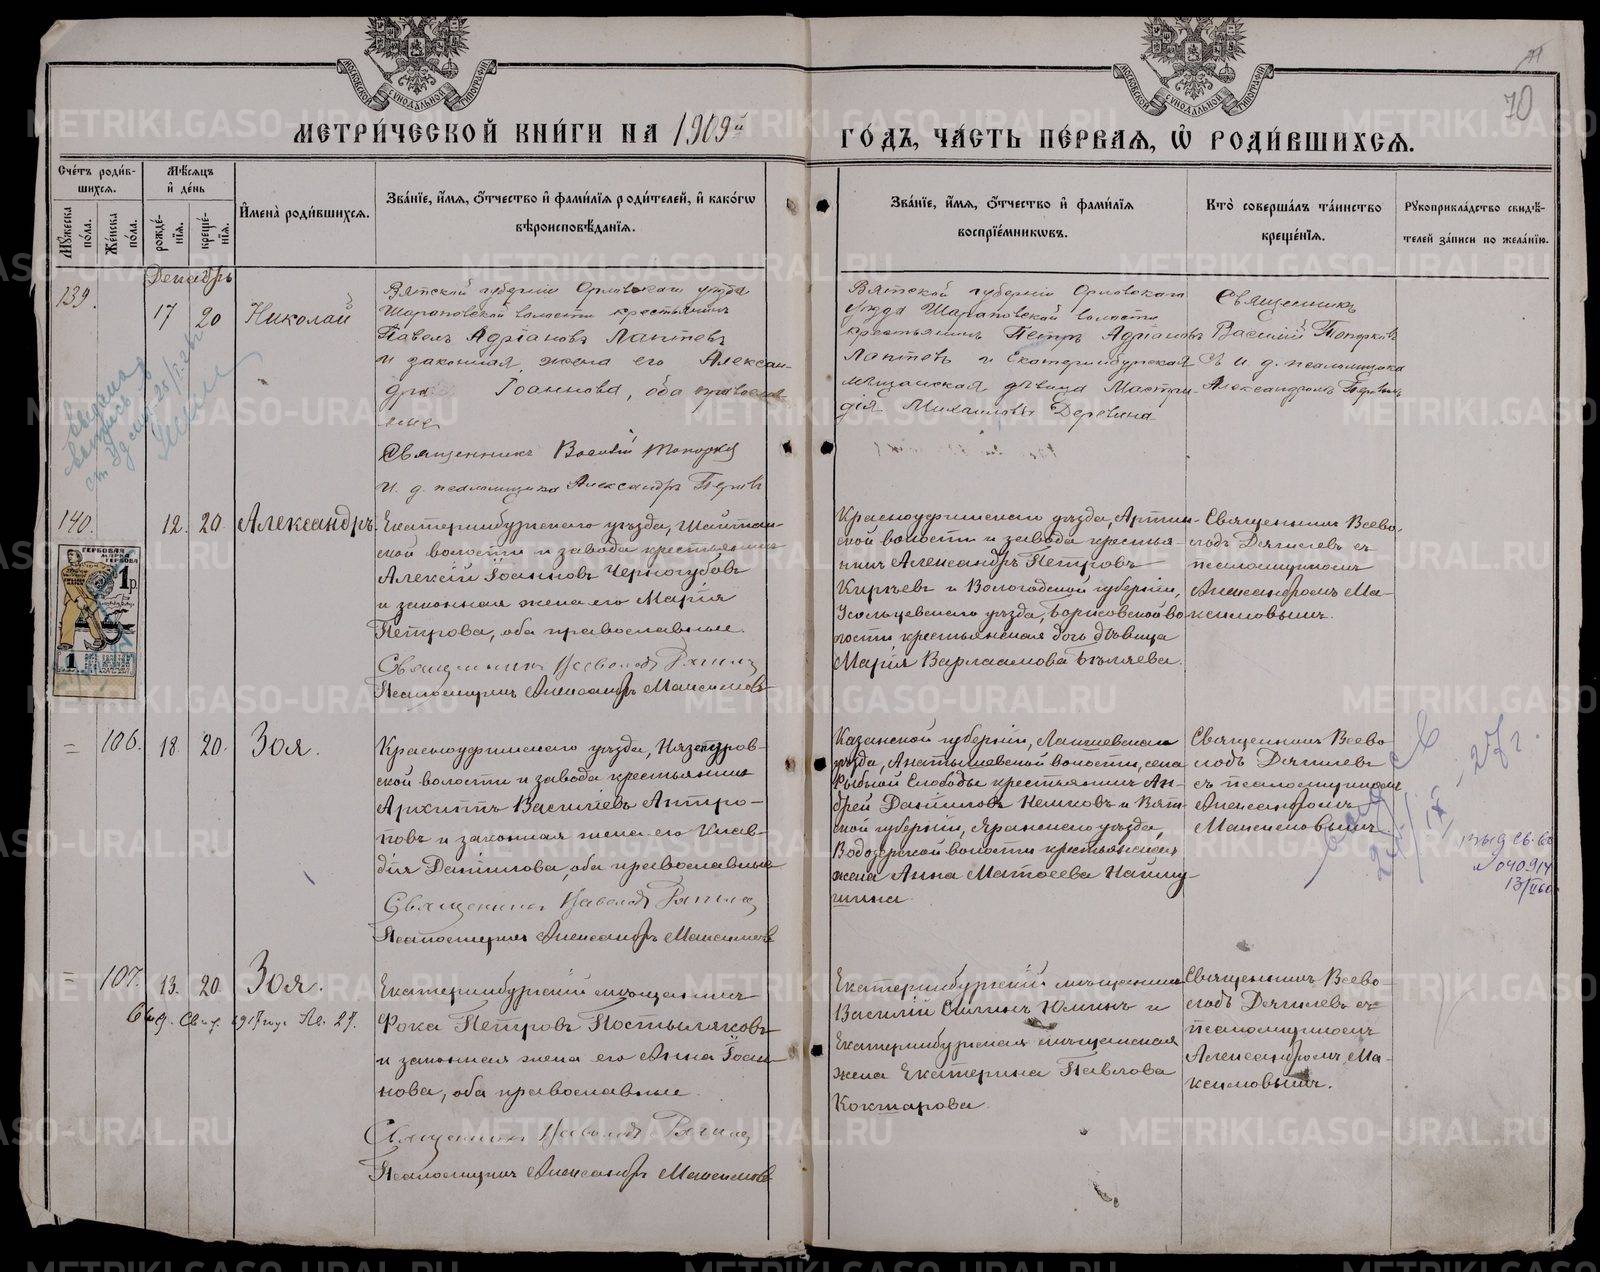 МЕТРИ́ЧЕСКОЙ КНИ́ГИ НА 1909й ГО́ДЪ, ЧА́СТЬ ПЕ́РВАѦ, Ѡ РОДИ́ВШИХСѦ.
70
Сче́тъ роди́вшихсѧ.
Мꙋ́жеска по́ла.
Же́нска по́ла.
Мѣ́сѧцъ и҆ де́нь
рожде́нїѧ.
креще́нїѧ.
И҆мена̀ роди́вшихсѧ.
Зва́нїе, и҆́мѧ, ѻ҆́тчество и҆ фами́лїѧ роди́телей, и҆ како́гѡ
вѣроисповѣ́данїѧ.
Зва́нїе, и҆́мѧ, ѻ҆́тчество и҆ фами́лїѧ
воспрїе́мникѡвъ.
Кто̀ соверша́лъ та́инство
креще́нїѧ.
Рꙋкоприкла́дство свидѣ́-
телей за́писи по жела́нїю.
Декабрь
139.
17
20
Николай
Вятской губерніи Орловскаго уѣзда
Шараповской волости крестьянинъ
Павелъ Адріановъ Лаптевъ
и законная жена его Алексан-
дра Іоаннова, оба православ-
ные
Священникъ Василій Топорковъ
И. д. псаломщика Александръ
Вятской губерніи Орловскаго
уѣзда Шараповской волости
крестьянинъ Петръ Адріановъ
Лаптевъ и Екатеринбургская
мѣщанская дѣвица
Михаилова Деревина
Священникъ
Василій Топорковъ
съ и. д. псаломщика
Александромъ
140.
12.
20.
Александръ.
Екатеринбургскаго уѣзда, Шайтан-
ской волости и завода крестьянинъ
Алексій Іоанновъ Черногубовъ
и законная жена его Марія
Петрова, оба православные.
Священникъ Всеволодъ
Псаломщикъ Александръ Максимовъ
Красноуфимскаго уѣзда, Артин-
ской волости и завода крестья-
нинъ Александръ Петровъ
Киряевъ и Вологодской губерніи,
Усольцевскаго уѣзда, Борисовской во-
лости крестьянская дочь дѣвица
Марія Варлаамова Бѣляева.
Священникъ Всево-
лодъ съ
псаломщикомъ
Александромъ Ма-
ксимовымъ.
ГЕРБОВАЯ
МАРКА
1 р.
1
=
106.
18.
20.
Зоя.
Красноуфимскаго уѣзда, Нязепетров-
ской волости и завода крестьянинъ
Архиппъ Василіевъ Антро-
повъ и законная жена его Клав-
дія Даніилова, оба православные
Священникъ Всеволодъ
Псаломщикъ Александръ Максимовъ
Казанской губерніи, Лаишевскаго
уѣзда, Анатышевской волости, села
Рыбной Слободы крестьянинъ Ан-
дрей Даніиловъ и Вят-
ской губерніи, Яранскаго уѣзда,
Водозерской волости крестьянская
жена Анна Матѳеева
Священникъ Всево-
лодъ
съ псаломщикомъ
Александромъ
Максимовымъ.
27 г.
№ 040914
=
107.
13.
20.
Зоя.
Св. 1917 году № 27.
Екатеринбургскій мѣщанинъ
Фока Петровъ Постниковъ
и законная жена его Анна Іоан-
нова, оба православные.
Священникъ Всеволодъ
Псаломщикъ Александръ Максимовъ
Екатеринбургскій мѣщанинъ
Василій Силинъ Юминъ и
Екатеринбургская мѣщанская
жена Екатерина Павлова
Кокшарова.
Священникъ Всево-
лодъ съ
псаломщикомъ
Александромъ Ма-
ксимовымъ.
METRIKI.GASO-URAL.RU